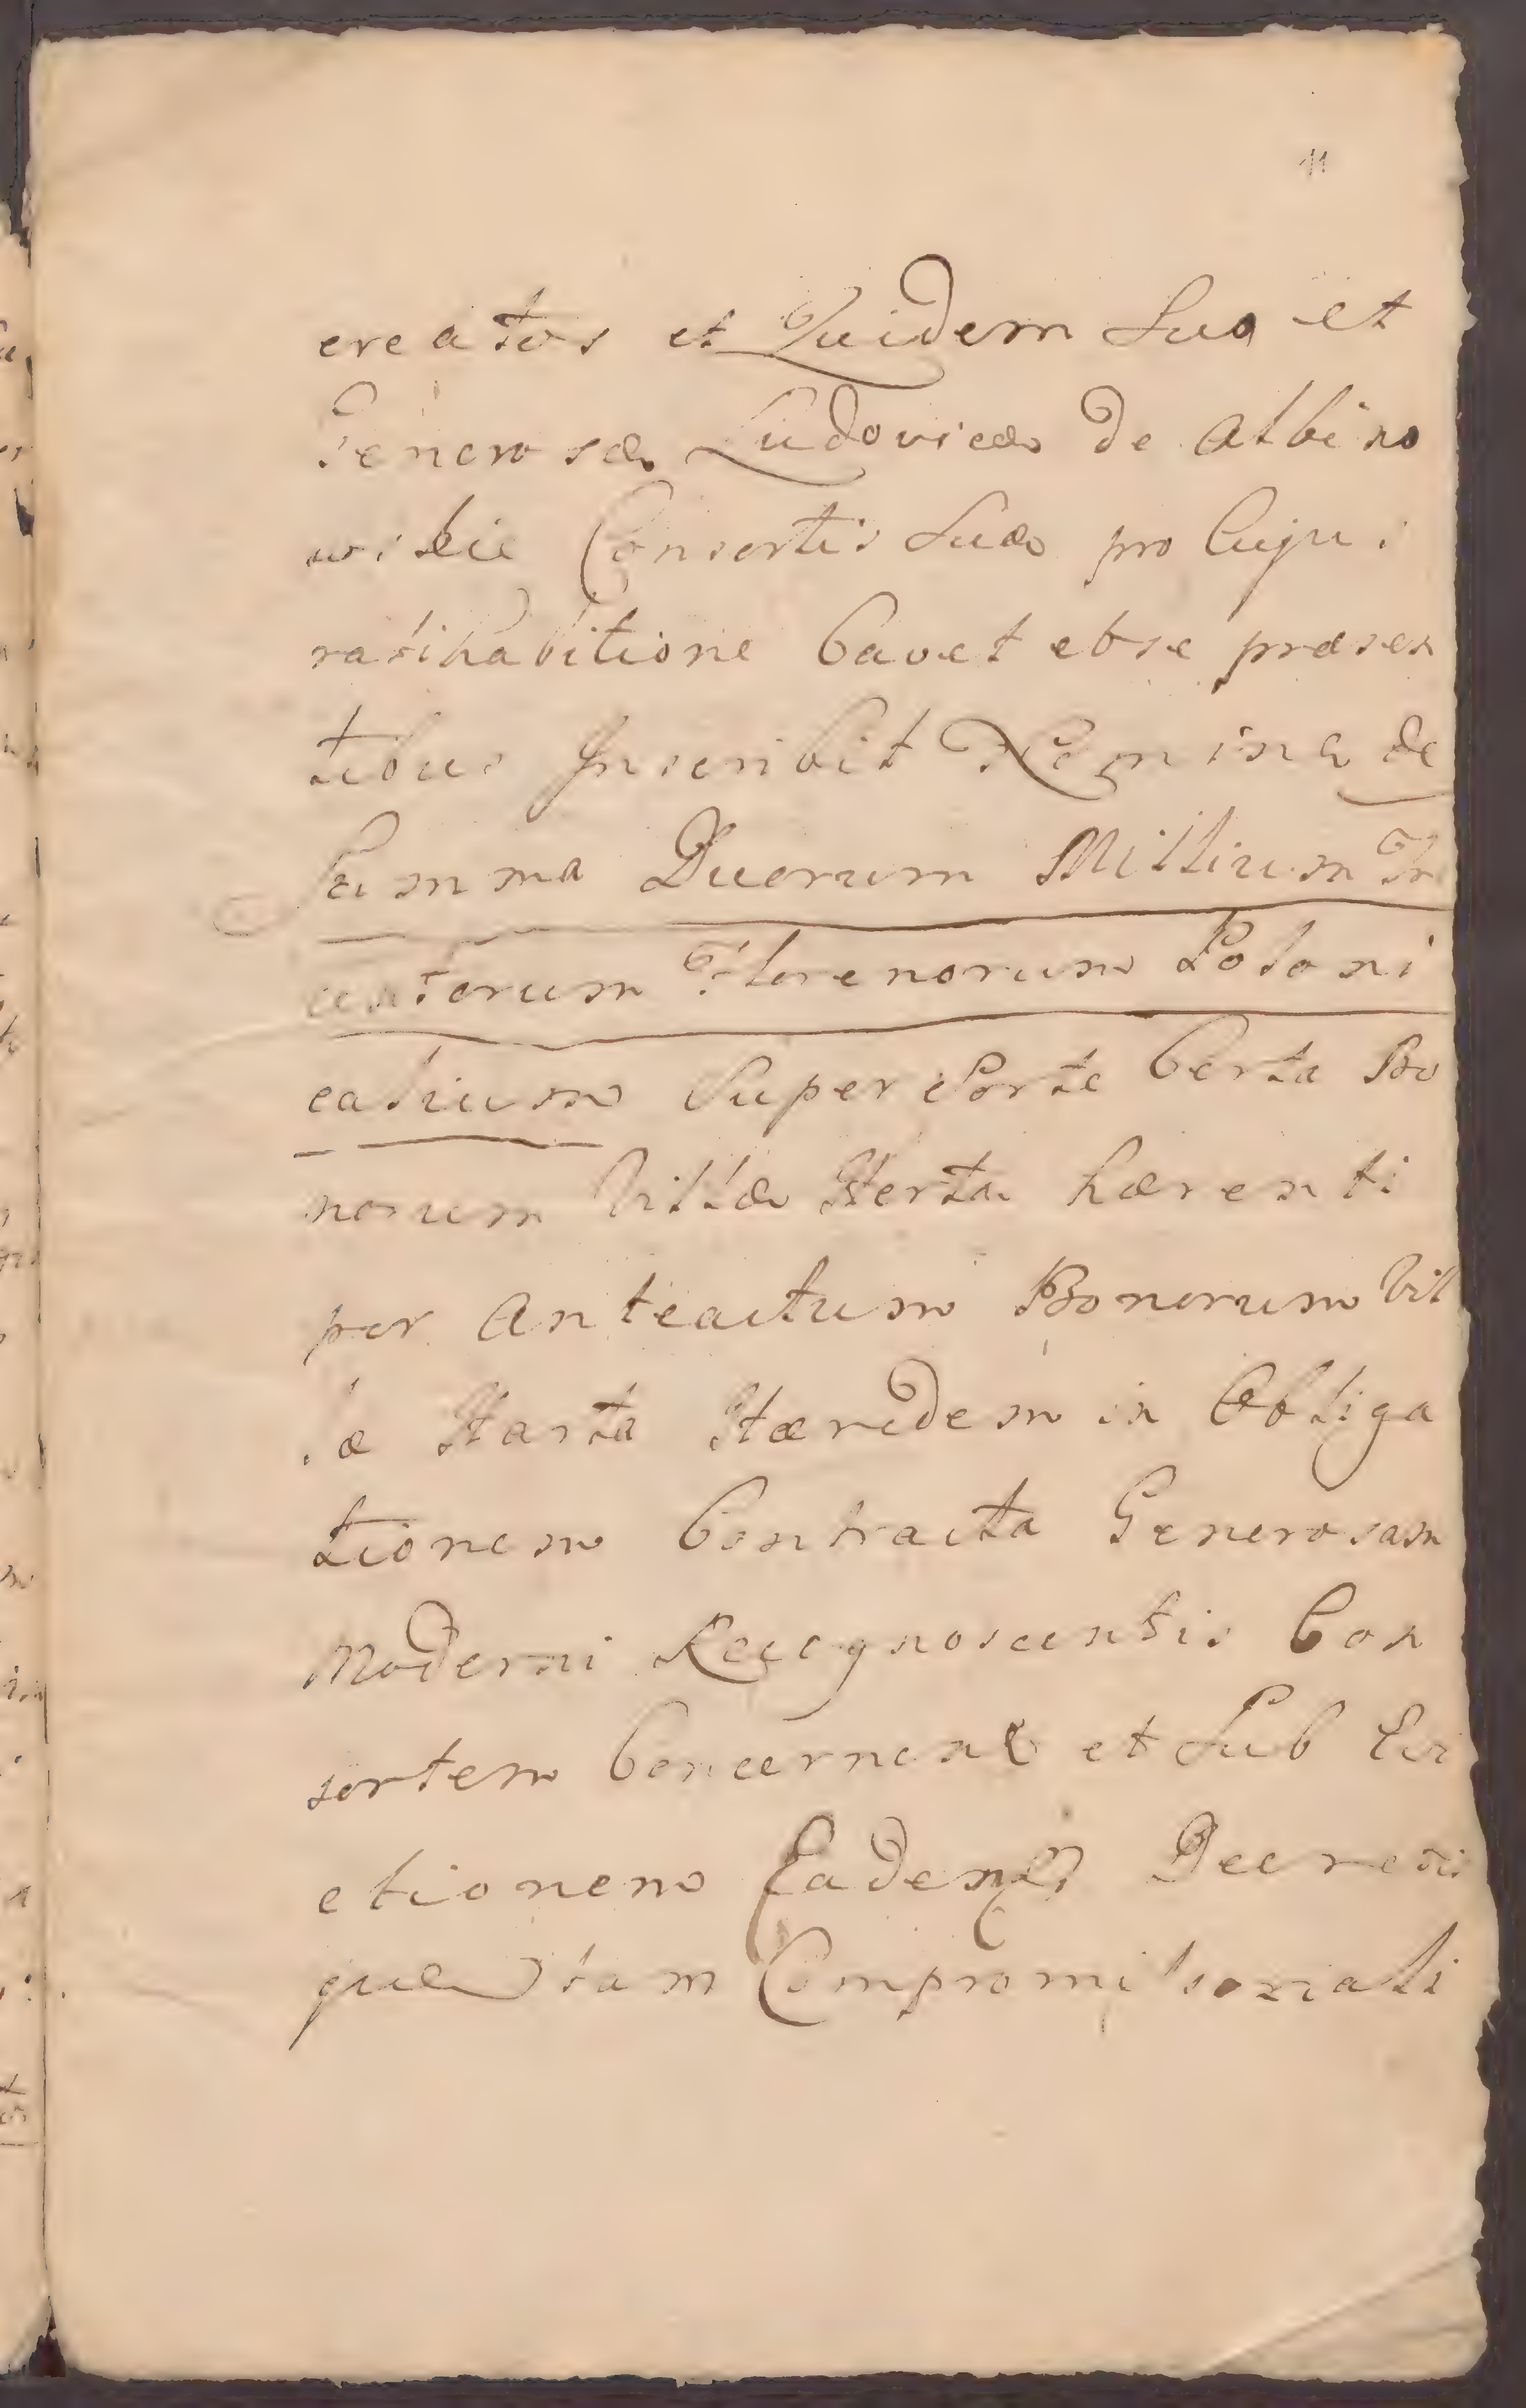 11
creatos et Quidem Suo et
Generosæ Ludovicæ de Albino
wskie Consortis Suæ pro Cujus
ratihabitione Cavet et se præsen
tibus Inscribit Nomine de
Summa Duorum Millium Tre
centorum Florenorum Poloni
calium Super Sorte Certa Bo
norum Villæ Harta hærenti
per Anteactum Bonorum Vil
læ Harta Hæredem in Obliga
tionem Contracta Generosam
Moderni Recognoscentis Con
sortem Concernen et Sub Evi
ctionem Decretis
que tam Compromissoriali